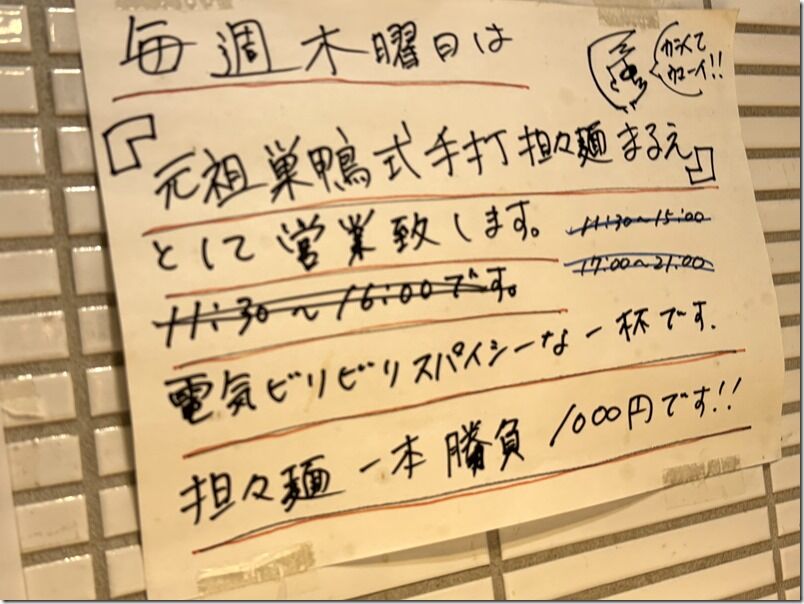 毎週木曜日は
『元祖巣鴨式手打担々麺まるえ』
として営業致します。
11:30～15:00
17:00～21:00
11:30～16:00です。
電気ビリビリスパイシーな一杯です.
担々麺一本勝負 1000円です!!